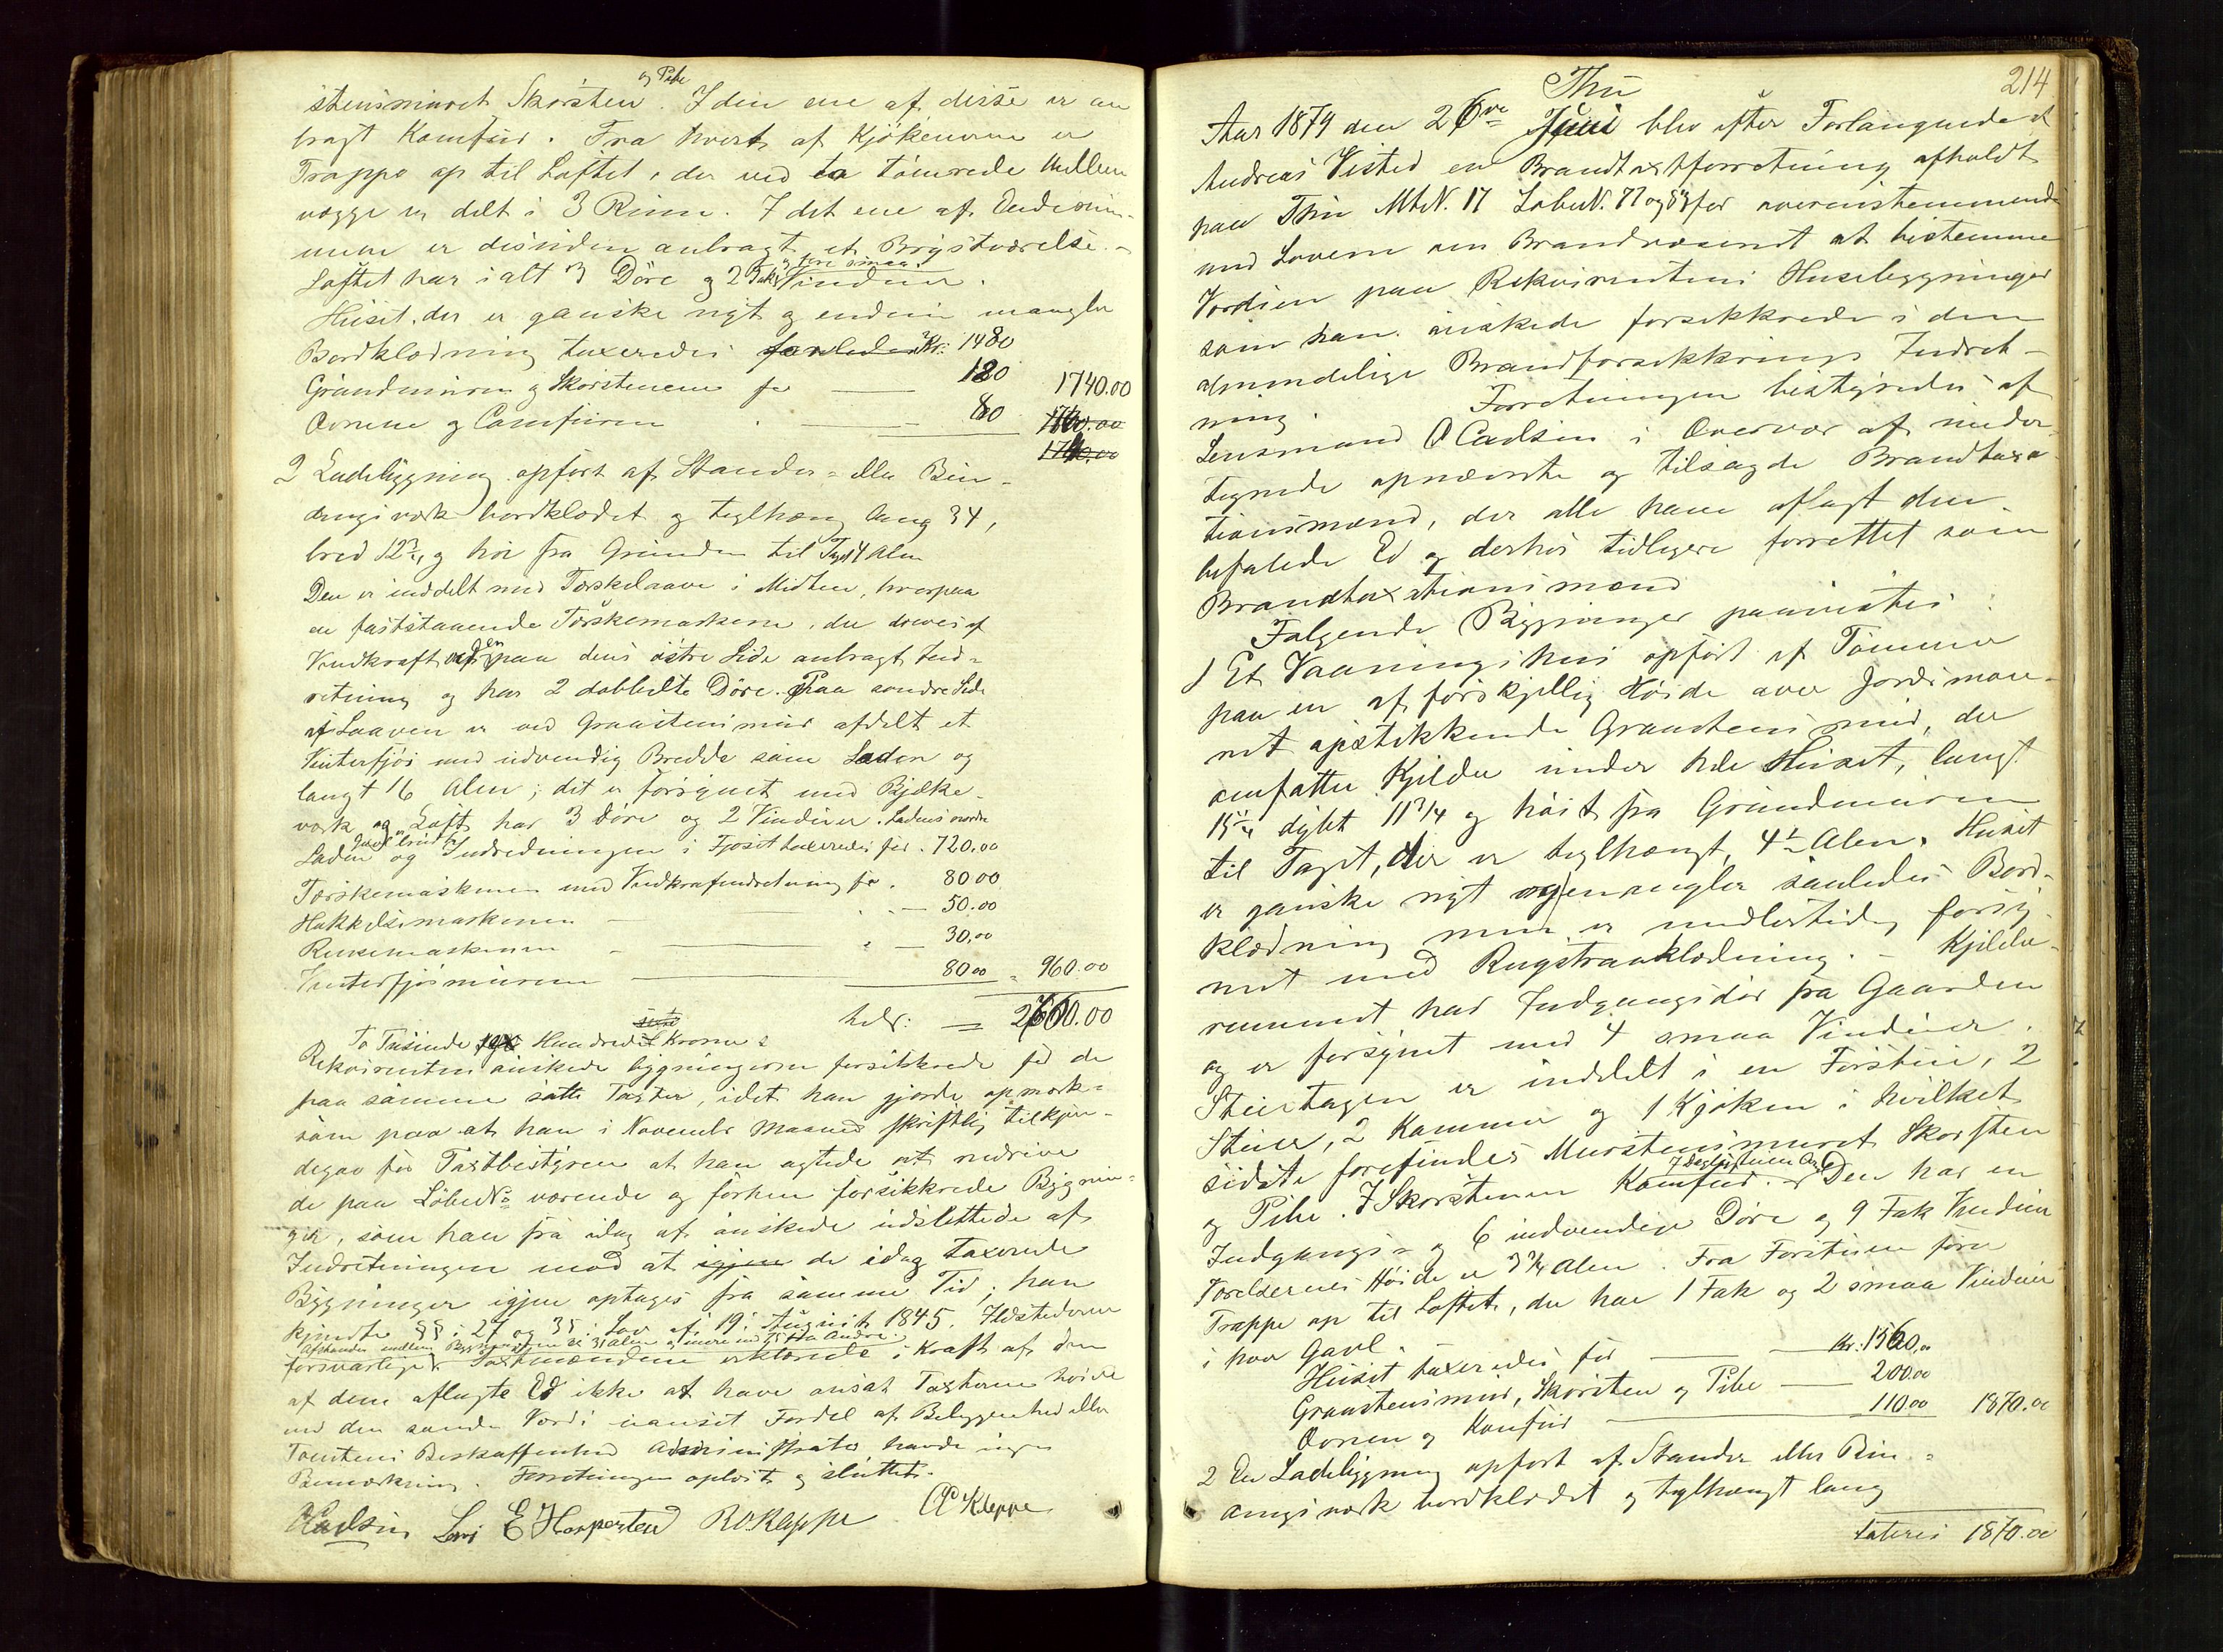 og Pibe
stensmuret Skorsten. I den ene af disse er an
bragt Komfur. Fra hvert af Kjøkenerne er
Trappe op til Loftet, der ved to tømrede Mellem
vægge er delt i 3 Rum. I det ene af Enderum-
mene er desuden anbragt et Brystværelse.-
og fire smaa
Loftet har i alt 3 Døre og 2 Taks Vinduer.
Huset, der er ganske nyt og endnu mangler
Bordklædning taxeredes for Kr: 1480
Grundmuren og Skorstenene for 180 1740.00
Ovnene og Comfuren 80 1760.00
1740.00
2 Ladebygning opført af Stander- eller Bin-
dingsværk bordklædet og teglhængt lang 34,
bred 12¾, og høi fra Grunden til Taget 4 Alen
Den er inddelt med Tærskelaave i Midten, hvorpaa
en faststaaende Tærskemaskine, der drives af
Vindkraft ved en paa dens østre Side anbragt Ind-
retning og har 2 dobbelte Døre. Paa søndre Side
af Laaven er ved Graastensmur afdelt et
Vinterfjøs med udvendig Bredde som Laden og
langt 16 Alen; det er forsynet med Bjelke-
værk og Loft har 3 Døre og 2 Vinduer. Ladens nordre
Laden og Indredningen i Fjøset taxeredes for . 720.00
Tærskemaskinen med Vindkraftindretning for . 80 00
Hakkelsemaskinen - 50.00
Rensemaskinen - 30,00
Vinterfjøsmuren 80 00 = 960.00
Kr: = 2700.00
To Tusinde syv Hundrede Kroner
Rekvirenten ønskede bygningerne forsikkrede for de
paa samme satte Taxter, idet han gjorde opmærk-
som paa at han i November Maaned skriftlig tilkjen-
degav for Taxtbestyreren at han agtede at nedrive
de paa Løbe No værende og forhen forsikkrede Bygnin-
ger, som han fra idag af ønskede udslettede af
Indretningen mod at igjen de idag taxerede
Bygninger igjen optages fra samme Tid; han
kjendte §§ 27 og 35 i Lov af 19 August 1845. Ildstederne
Afstanden mellem Bygningerne er 31 Alen og mere end 75 fra Andre.
forsvarlige. Taxtmændene erklærede i Kraft af den
af dem aflagte Ed ikke at have ansat Taxterne høiere
end den sande Værdi uanset Fordel af Beliggenhed eller
Tomtens Beskaffenhed Administrator havde ingen
Bemærkning. Forretningen oplæst og sluttet.
OCarlsen Lars E Hesperten R.O.Kleppe O P Kleppe
214
Thu
Aar 1879 den 26de Juni blev efter Forlangende af
Andreas Visted en Brandtaxtforretning afholdt
paa Thu Mt.N. 17 Løbe N. 77 og 83 for overensstemmende
med Lovene om Brandvæsenet at bestemme
Værdien paa Rekvirentens Husebygninger
som han ønskede forsikkrede i den
almindelige Brandforsikkrings Indret-
ning. Forretningen bestyredes af
Lensmand O Carlsen i Overvær af under-
tegnede opnævnte og tilsagde Brandtaxa-
tionsmænd, der alle have aflagt den
befalede Ed og derhos tidligere forrettet som
Brandtaxationsmænd
Følgende Bygninger paavistes:
1 Et Vaaningshus opført af Tømmer
paa en af forskjellig Høide over Jordsmon-
net opstikkende Graastensmur, der
omfatter Kjelder under hele Huset, langt
15¼ dybt 11¾ og høit fra Grundmuren
til Taget, der er teglhængt, 4½ Alen. Huset
er ganske nyt og mangler saaledes Bord-
klædning men er midlertidig forsy-
net med Rugstraaklædning. - Kjelder-
rummet har Indgangsdør fra Gaarden
og er forsynet med 4 smaa Vinduer.
Stuetagen er inddelt i en Forstue, 2
Stuer, 2 Kamme og 1 Kjøken i hvilket
sidste forefindes Murstensmuret Skorsten
og Pibe. I Skorstenen Komfur. Den har en
I Dagligstuen Ovn
Indgangs- og 6 indvendige Døre og 9 Fak Vinduer
Værelsernes Høide er 3¾ Alen. Fra Forstuen fører
Trappe op til Loftet, der har 1 Fak og 2 smaa Vinduer
i hver Gavl.
Huset taxeredes for Kr: 1560,00
Graastensmur, Skorsten og Pibe 200.00
Ovnen og Komfur 110.00 1870.00
2 En Ladebygning opført af Stander eller Bin-
dingsværk bordklædet og teglhængt lang
Lateres 1870.00